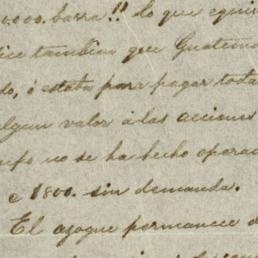 0.000. barra!! lo que equi
ice tambien que Guatema
do, ó estaba para pagar toda
algun valor á las acciones
no se ha hecho opera
e 1800. sin demanda.
El azogue permanece